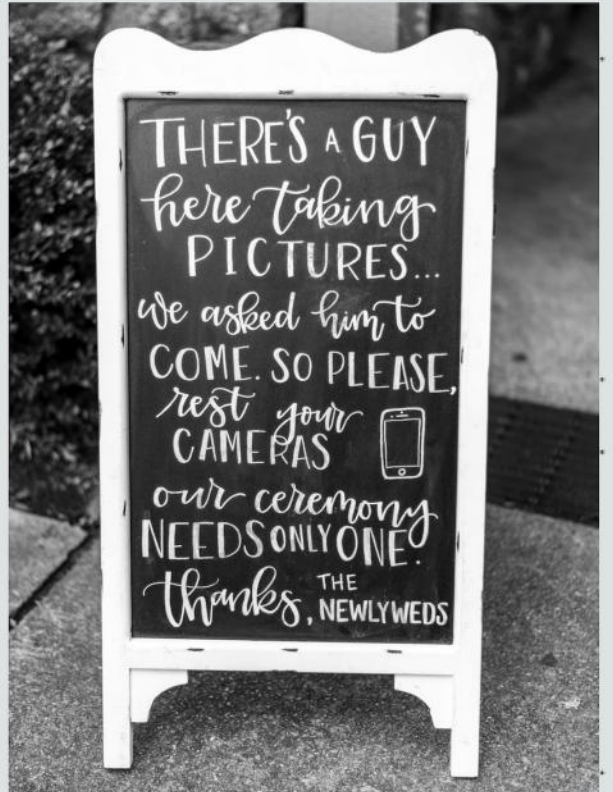 THERE'S A GUY
here taking
PICTURES...
we asked him to
COME. SO PLEASE,
rest your
CAMERAS
our ceremony
NEEDS ONLY ONE.
thanks, THE NEWLYWEDS